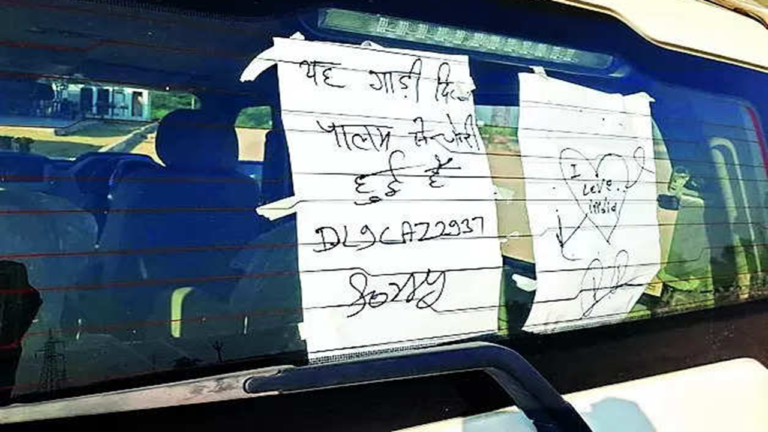 यह गाड़ी दिल्ली
पालम से चोरी
हुई है
DL9CAZ2937
Sorry
I
Love
India